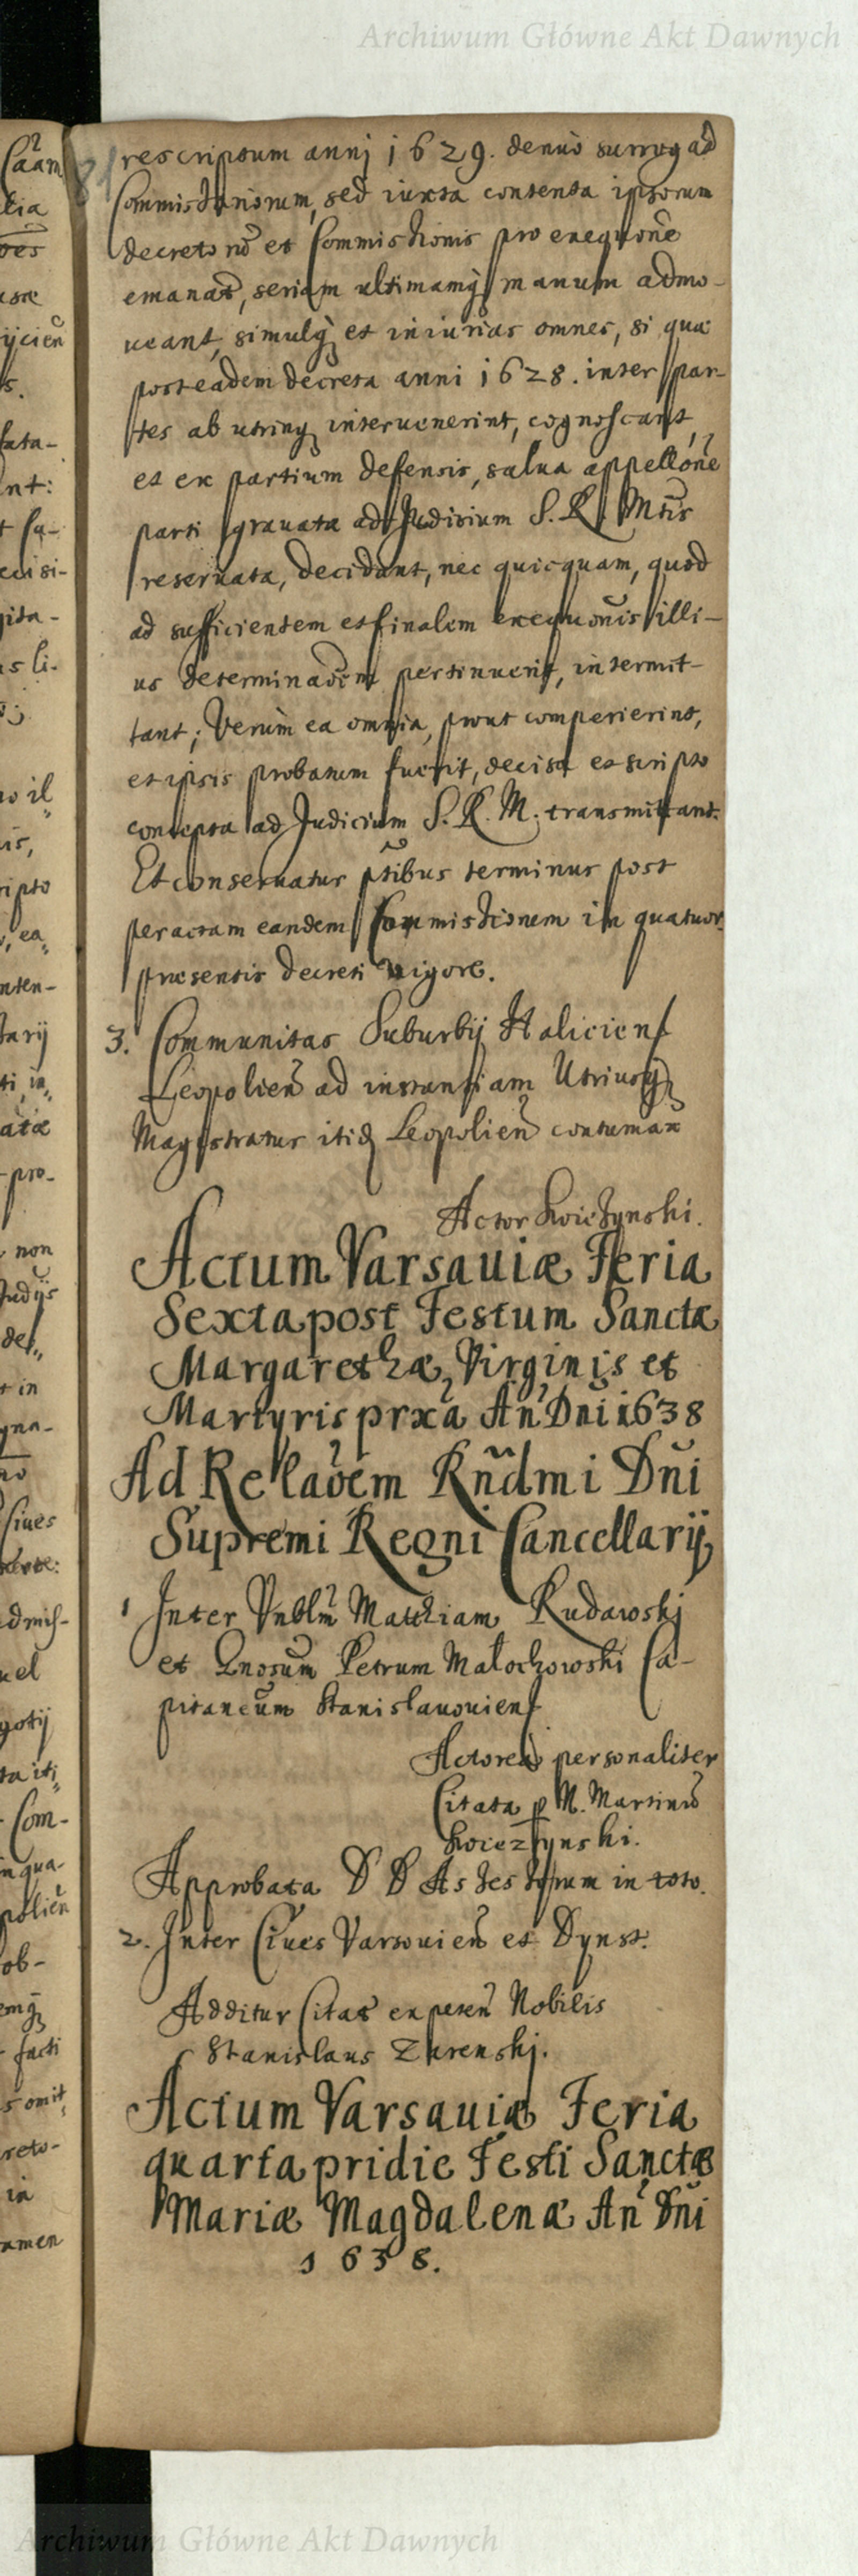 Archiwum Główne Akt Dawnych
81
rescriptum anni 1629. denuo surrogad
Commissariorum, sed iuxta contenta ipsorum
decretorũ et Commissionis pro exeqũone
emanat̃, seriam ultimamq; manum admo-
ueant, simulq; et iniurias omnes, si quæ
post eadem decreta anni 1628. inter par-
tes ab utrinq; interuenerint, cognoscant,
et ex partium defensis, salua appellõne
parti grauata ad Judicium S. R. Mtis
reseruata, decidant, nec quicquam, quod
ad sufficientem et finalem exequõnis illi-
us determinaõem pertinuerit, intermit-
tant; Verum ea omnia, prout comperierint,
et ipsis probatum fuerit, decisa et scripto
contepta ad Judicium S. R. M. transmittant.
Et conseruatur ptibus terminus post
peractam eandem Commissionem in quatuor
præsentis decreti uigore.
3. Communitas Suburbij Haliciens
Leopolien̄ ad instantiam Utriusq;
Magistratus itid Leopolien̄ contumax
Actor Kwiezynski.
Actum Varsauiæ Feria
Sexta post Festum Sanctæ
Margarethæ, Virginis et
Martyris prxã An̄ Dni 1638
Ad Relaõem Rñdmi Dñi
Supremi Regni Cancellarij,
1 Inter Vnblm̃ Matthiam Rudawski
et Gnosum Petrum Małochowski Ca-
pitaneum Stanislauouiens
Actorea personaliter
Citata p M. Martinũ
Kwiezynski.
Approbata D D Assessorum in toto.
2. Inter Ciues Varsouien̄ et Dynst.
Additur Citat̃ ex parte Nobilis
Stanislaus Zurenski.
Actum Varsauiæ Feria
quarta pridie Festi Sanctæ
Mariæ Magdalenæ An̄ Dñi
1638.
Archiwum Główne Akt Dawnych